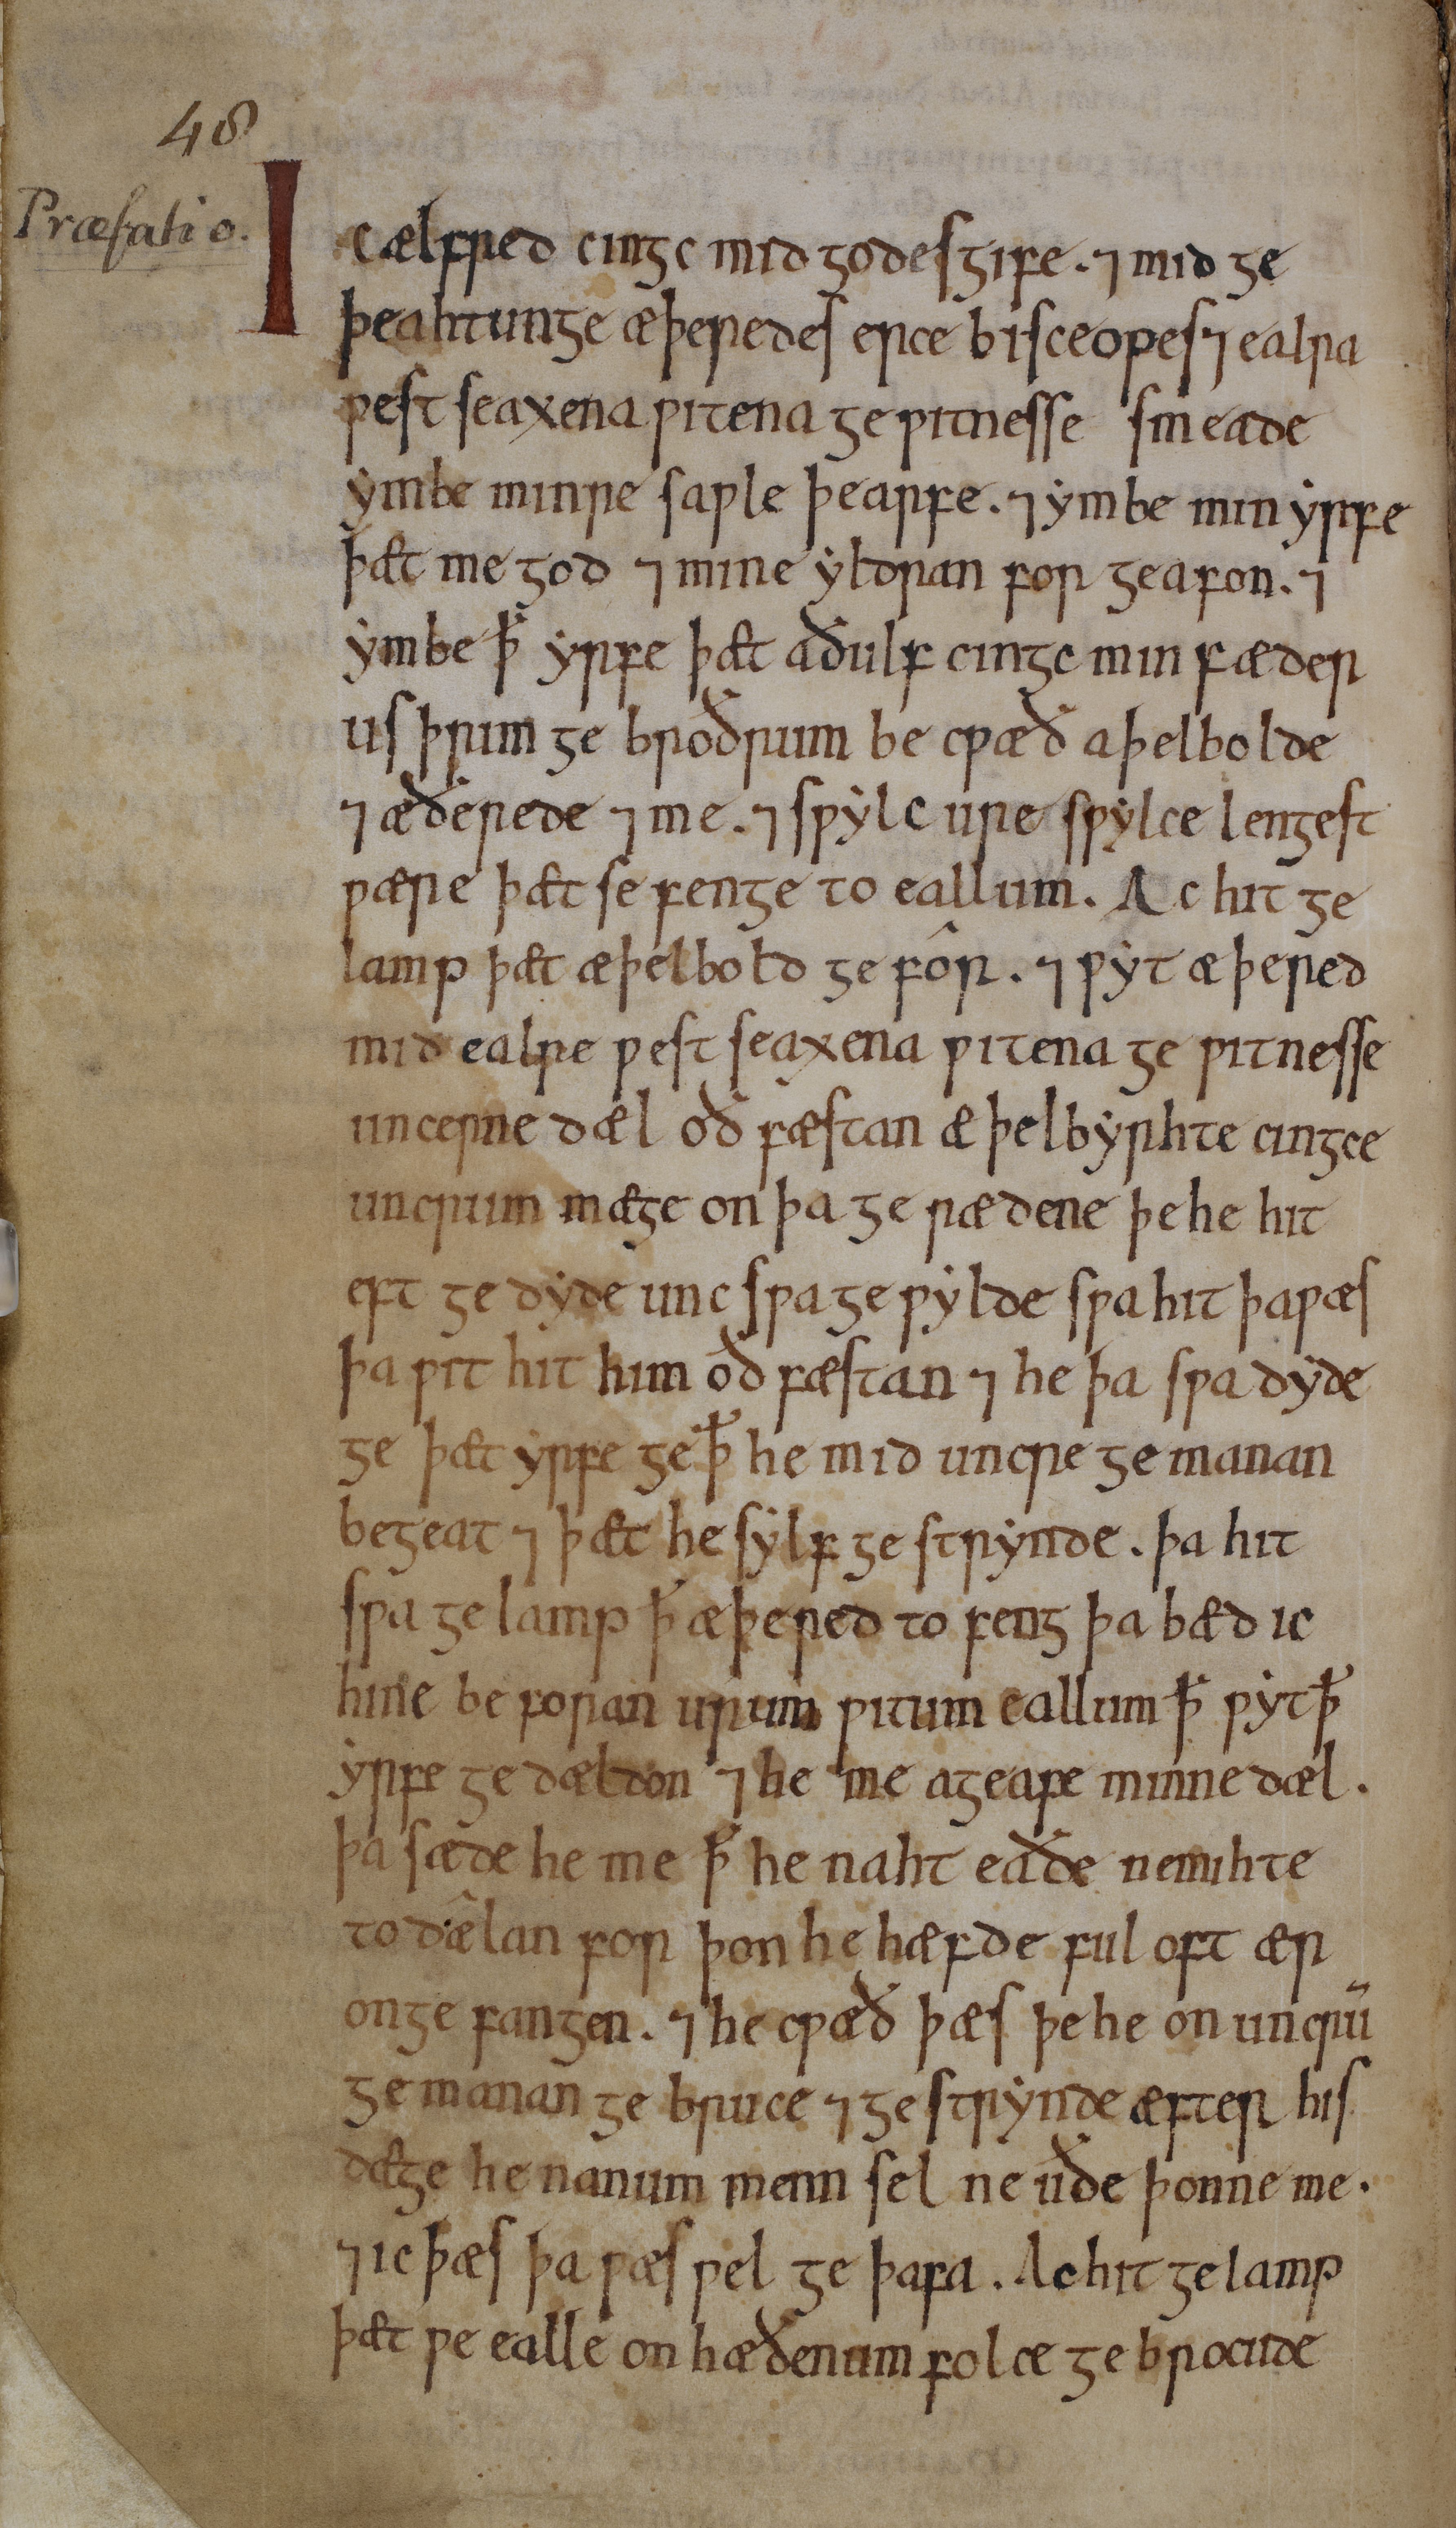 48
Præfatio.
Ic ælfred cingc mid godes gife. ⁊ mid ge
þeahtunge æþeredes erce bisceopes ⁊ ealra
ƿest seaxena ƿitena ge ƿitnesse smeade
ẏmbe minre saƿle þearfe. ⁊ ẏmbe min ẏrfe
þæt me god ⁊ mine ẏldran for geafon. ⁊
ẏmbe ꝥ ẏrfe þæt aðulf cingc min fæder
us þrim ge broðrum be cƿæð aþelbolde
⁊ æðerede ⁊ me. ⁊ sƿẏlc ure sƿẏlce lengest
ƿære þæt se fenge to eallum. Ac hit ge
lamp þæt æþelbold ge fôr. ⁊ ƿẏt æþered
mid ealre ƿest seaxena ƿitena ge ƿitnesse
uncerne dæl oð fæstan æþelbẏrhte cingce
uncrum mæge on þa ge rædene þe he hit
eft ge dẏde unc sƿa ge ƿẏlde sƿa hit þa ƿæs
þa ƿit hit him oð fæstan ⁊ he þa sƿa dẏde
ge þæt ẏrfe ge ꝥ he mid uncre ge manan
begeat ⁊ þæt he sẏlf ge strẏnde. þa hit
sƿa ge lamp ꝥ æþered to feng þa bæd ic
hine be foran urum ƿitum eallum ꝥ ƿẏt ꝥ
ẏrfe ge dældon ⁊ he me ageafe minne dæl.
þa sæde he me ꝥ he naht eaðe ne mihte
to dǽlan for þon he hæfde ful oft ær
onge fangen. ⁊ he cƿæð þæs þe he on uncrū
ge manan ge bruce ⁊ ge strẏnde æfter his
dæge he nanum menn sel ne uðe þonne me.
⁊ ic þæs þa ƿæs ƿel ge þafa. Ac hit ge lamp
þæt ƿe ealle on hæðenum folce ge brocude